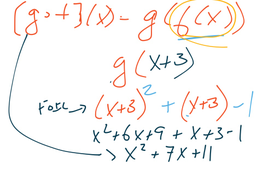 [g∘f](x) = g(f(x))
g(x+3)
FOIL → (x+3)² + (x+3) - 1
x² + 6x + 9 + x + 3 - 1
x² + 7x + 11